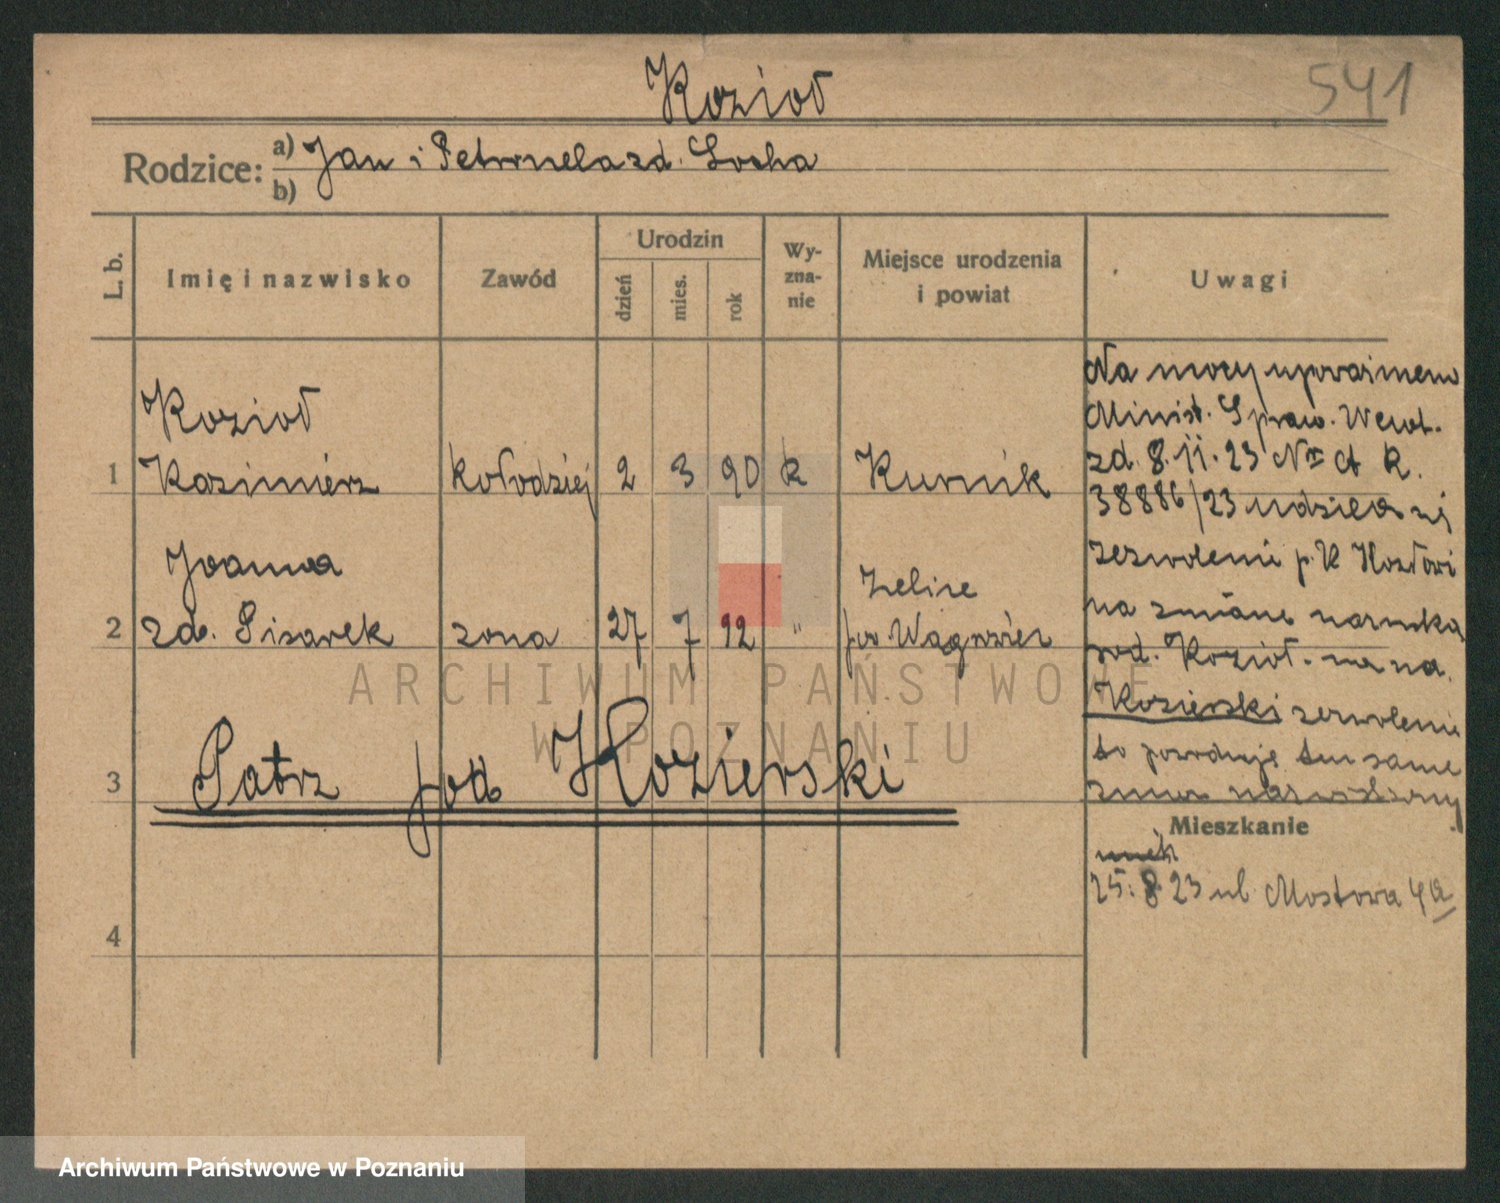 Kozioł
541
Rodzice: a) Jan i Petronela zd. Socha
b)
L. b.
Imię i nazwisko
Zawód
Urodzin
dzień
mies.
rok
Wy-
zna-
nie
Miejsce urodzenia
i powiat
Uwagi
Kozioł
1 Kazimierz kołodziej 2 3 90 k Kurnik
Joanna
2 zd. Pisarek zona 27 7 92 " Zelice
pow. Wągrowiec
3 Patrz pod Kozierski
4
Na mocy upoważnienia
Minist. Spraw. Wewt.
zd. 8.11.23 Nr A R.
38886/23 udziela się
zezwolenie p. K Kozłowi
na zmianę nazwiska
rod. Kozioł na na.
Kozierski zezwolenie
to powoduje tem same
zmianę nazwiska żony
Mieszkanie
25.8.23 ul. Mostowa 4a
ARCHIWUM PAŃSTWOWE
W POZNANIU
Archiwum Państwowe w Poznaniu